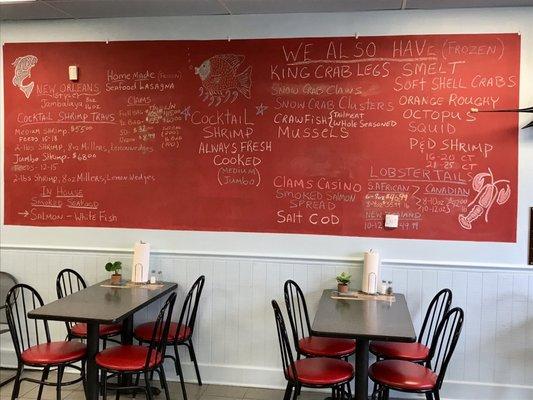 NEW ORLEANS
Jambalaya 16oz
Cocktail Shrimp Trays
Medium Shrimp - $55.00
Feeds 16-18
2-lbs Shrimp, 8oz Millers, Lemon wedges
Jumbo Shrimp - $68.00
Feeds 12-15
2-lbs Shrimp, 8oz Millers, Lemon wedges
In House
Smoked Seafood
→ Salmon - White Fish
Home Made (Frozen)
Seafood Lasagna
Clams
Cocktail
Shrimp
Always Fresh
Cooked
(Medium)
(Jumbo)
We Also Have (Frozen)
King Crab Legs
Snow Crab Claws
Snow Crab Clusters
Crawfish
Whole Seasoned
Mussels
Clams Casino
Smoked Salmon
Spread
Salt Cod
Smelt
Soft Shell Crabs
Orange Roughy
Octopus
Squid
P&D Shrimp
16-20 CT
21-25 CT
Lobster Tails
S. African
Canadian